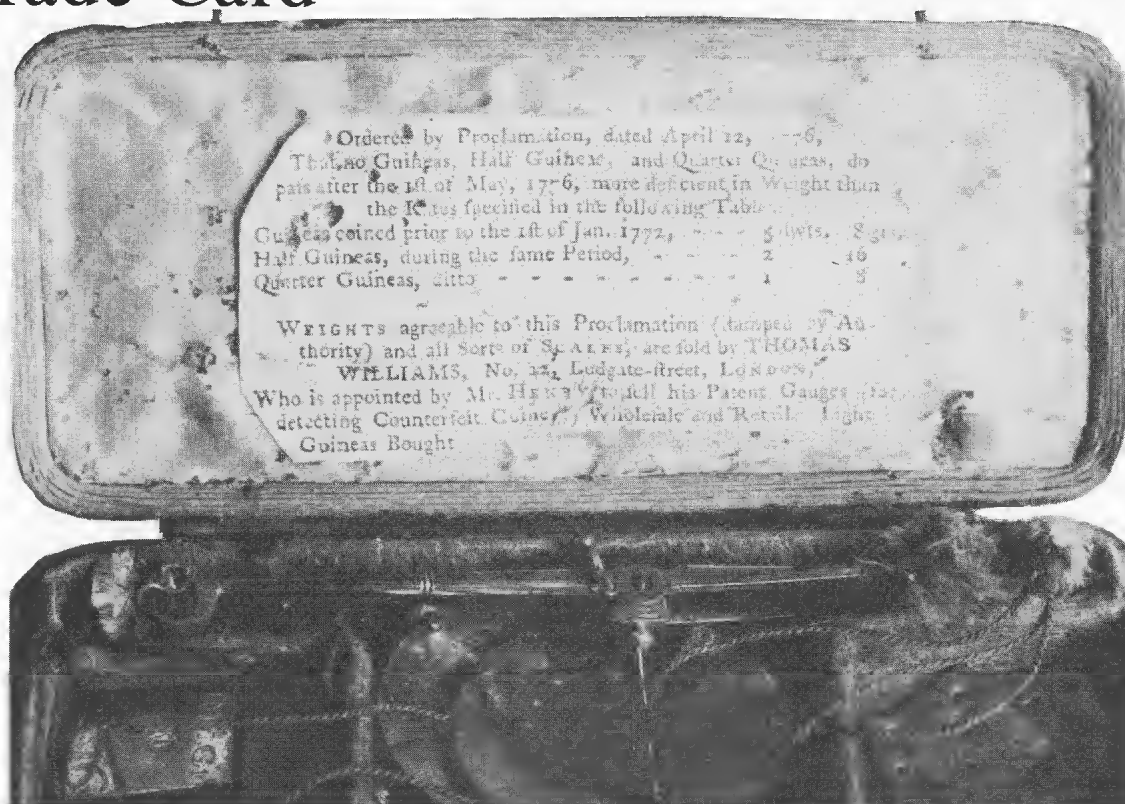 rade Card
Ordered by Proclamation, dated April 12, 76,
That no Guineas, Half Guineas, and Quarter Guineas, do
pass after the 1ſt of May, 1776, more deficient in Weight than
the Rates ſpecified in the following Table
Guineas coined prior to the 1ſt of Jan. 1772, - - - 5 dwts. 8 grs.
Half Guineas, during the ſame Period, - - - - 2 16
Quarter Guineas, ditto - - - - - - - 1 8
WEIGHTS agreeable to this Proclamation (ſtamped by Au-
thority) and all Sorts of SCALES, are ſold by THOMAS
WILLIAMS, No. Ludgate-ſtreet, LONDON,
Who is appointed by Mr. ſell his Patent Gauges (for
detecting Counterfeit Coiner) Wholeſale and Retail Light
Guineas Bought